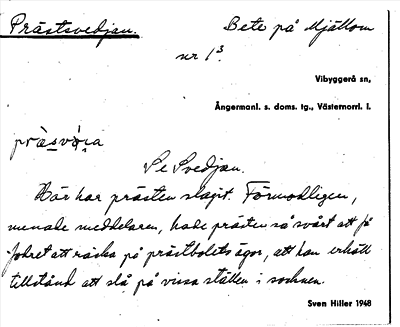 Prästsvedjan.
Bete på Mjällom
nr 1³.
Vibyggerå sn,
Ångermanl. s. doms. tg., Västernorrl. l.
Se Svedjan.
Här har prästen slagit. Förmodligen,
menade meddelaren, hade prästen så svårt att få
fodret att räcka på prästbolets ägor, att han erhöll
tillstånd att slå på vissa ställen i socknen.
Sven Hiller 1948